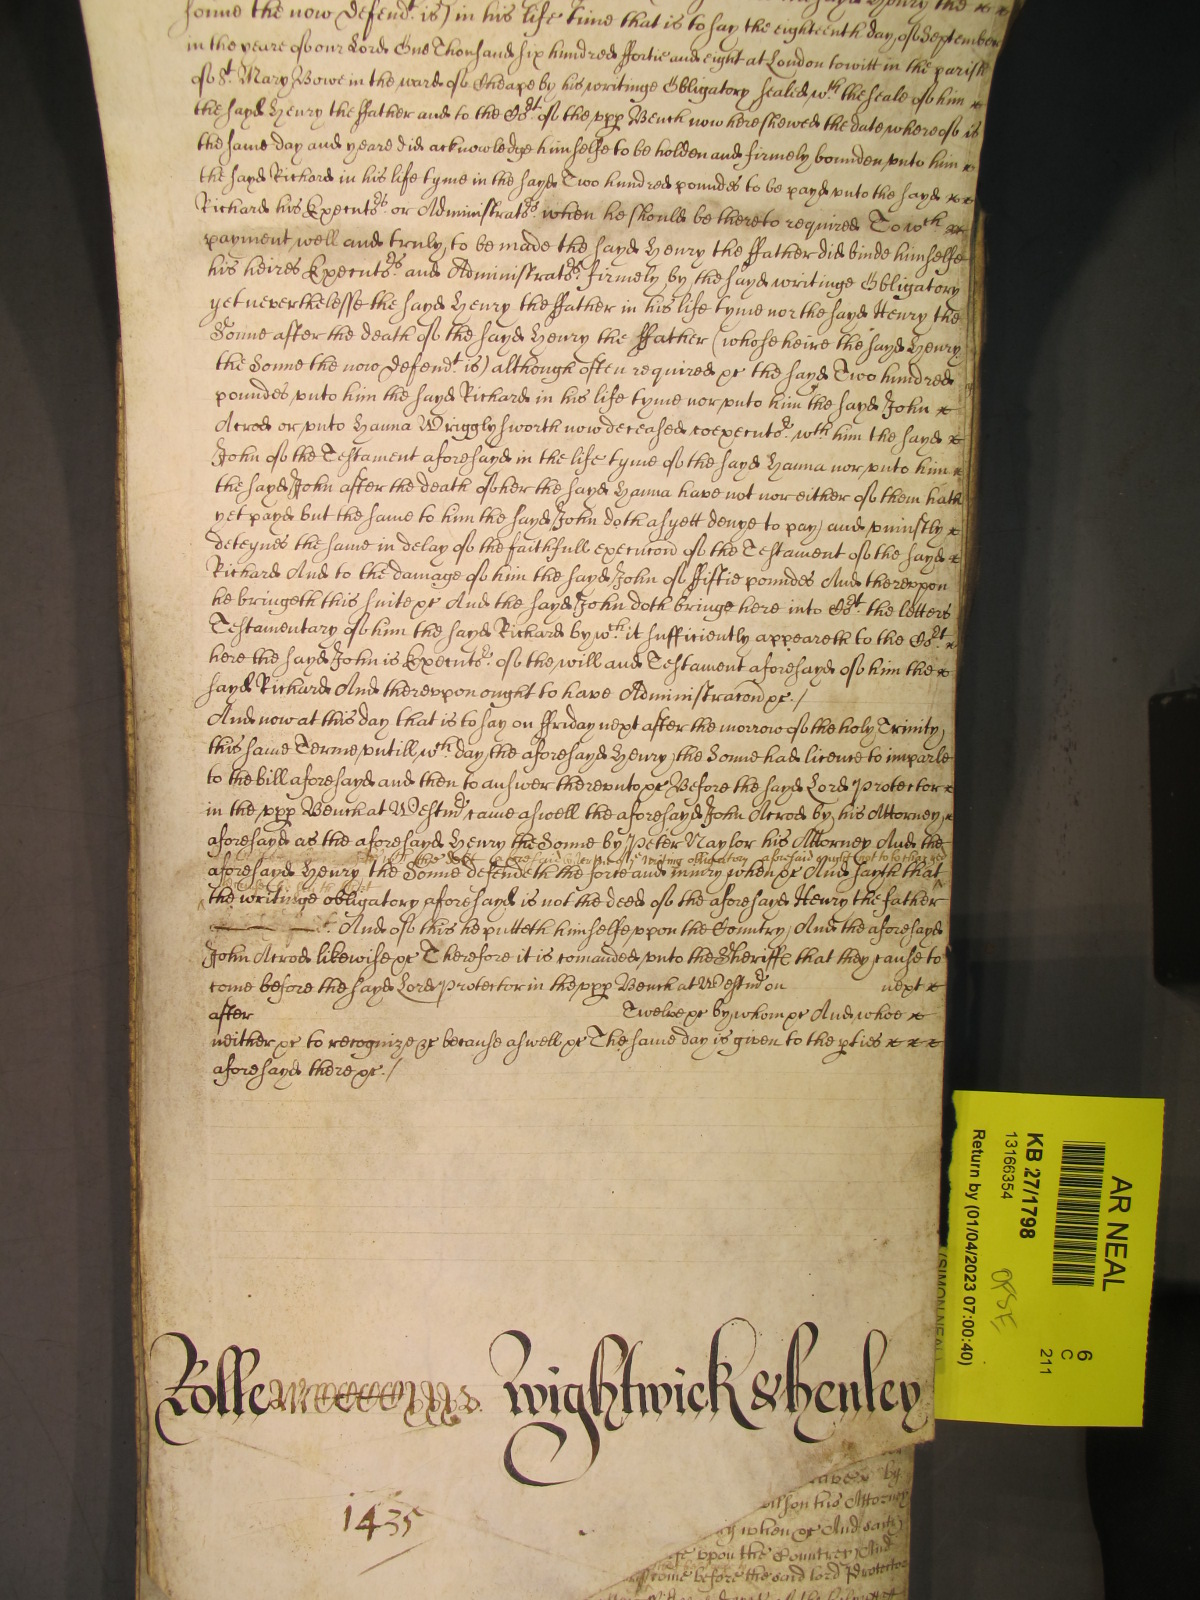 sonne the now Defendt. is) in his life time that is to say the eighteenth day of September
in the yeare of our Lord One Thousand six hundred ffortie and eight at London to witt in the parish
of St. Mary Bowe in the ward of Cheape by his writinge Obligatory sealed wth. the seale of him
the sayd Henry the ffather and to the Cort. of the vpp Bench now here shewed the date whereof is
the same day and yeare did acknowledge himselfe to be holden and firmely bounden vnto him
the sayd Richard in his life tyme in the sayd Two hundred poundes to be payd vnto the sayd
Richard his Executors. or Administrators. when he should be thereto required To wch
payment well and truly to be made the sayd Henry the ffather did binde himselfe
his heires Executors. and Administrators. firmely by the sayd writinge Obligatory
yet neverthelesse the sayd Henry the ffather in his life tyme nor the sayd Henry the
Sonne after the death of the sayd Henry the ffather (whose heire the sayd Henry
the Sonne the now Defendt. is) although often required &c the sayd Two hundred
poundes vnto him the sayd Richard in his life tyme nor vnto him the sayd John
Acrod or vnto Hanna Wrigglysworth now deceased coexecutor. wth him the sayd
John of the Testament aforesayd in the life tyme of the sayd Hanna nor vnto him
the sayd John after the death of her the sayd Hanna have not nor either of them hath
yet payd but the same to him the sayd John doth as yett denye to pay and vniustly
deteynes the same in delay of the faithfull execucon of the Testament of the sayd
Richard And to the damage of him the sayd John of ffiftie poundes And therevppon
he bringeth this suite &c And the sayd John doth bringe here into Cort. the letters
Testamentary of him the sayd Richard by wch. it sufficiently appeareth to the Cort.
here the sayd John is Executor. of the will and Testament aforesayd of him the
sayd Richard And therevppon ought to have Administracon &c./
And now at this day that is to say on ffriday next after the morrow of the holy Trinity
this same Terme vntill wch. day the aforesayd Henry the Sonne had licence to imparle
to the bill aforesayd and then to answer therevnto &c Before the sayd Lord Protector
in the vpp Bench at Westmr came aswell the aforesayd John Acrod by his Attorney
aforesayd as the aforesayd Henry the Sonne by Peter Naylor his Attorney And the
writing obligatory aforesaid ought not to
aforesayd Henry the Sonne defendeth the force and iniury when &c And sayth that
the writinge obligatory aforesayd is not the deed of the aforesayd Henry the father
And of this he putteth himselfe vppon the Country And the aforesayd
John Acrod likewise &c Therefore it is comanded vnto the Sheriffe that they cause to
come before the sayd Lord Protector in the vpp Bench at Westmr on next
after Twelve &c by whom &c And whoe
neither &c to recognize &c because aswell &c The same day is given to the pties
aforesayd there &c./
Rolle Wightwick & henley
1435
by
his Attorney
when &c And saith
vpon the Countrey And
come before the said Lord Protector
AR NEAL
KB 27/1798
13166354
Return by (01/04/2023 07:00:40)
6
C
211
(SIMON NEAL)